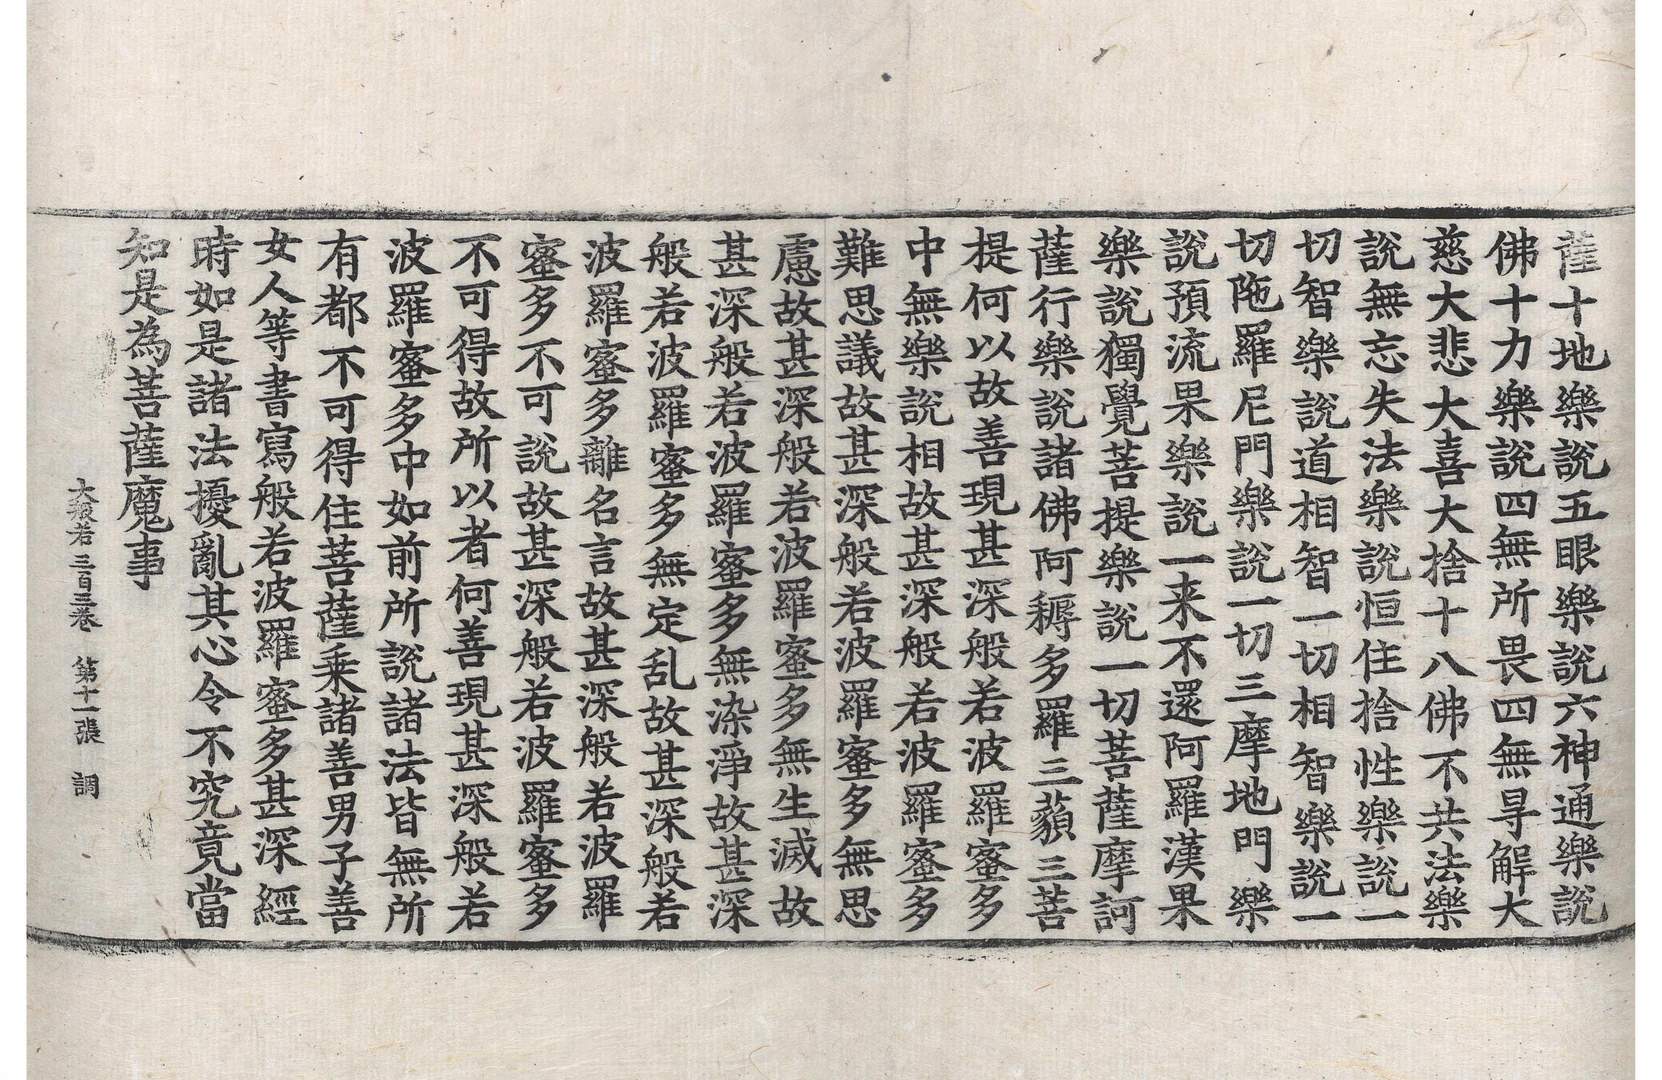 薩十地樂說五眼樂說六神通樂說
佛十力樂說四無所畏四無导解大
慈大悲大喜大捨十八佛不共法樂
說無忘失法樂說恒住捨性樂說一
切智樂說道相智一切相智樂說一
切陁羅尼門樂說一切三摩地門樂
說預流果樂說一来不還阿羅漢果
樂說獨覺菩提樂說一切菩薩摩訶
薩行樂說諸佛阿耨多羅三藐三菩
提何以故善現甚深般若波羅蜜多
中無樂說相故甚深般若波羅蜜多
難思議故甚深般若波羅蜜多無思
慮故甚深般若波羅蜜多無生滅故
甚深般若波羅蜜多無染淨故甚深
般若波羅蜜多無定乱故甚深般若
波羅蜜多離名言故甚深般若波羅
蜜多不可說故甚深般若波羅蜜多
不可得故所以者何善現甚深般若
波羅蜜多中如前所說諸法皆無所
有都不可得住菩薩乘諸善男子善
女人等書寫般若波羅蜜多甚深經
時如是諸法擾亂其心令不究竟當
知是為菩薩魔事
大般若三百三卷 第十一張 調